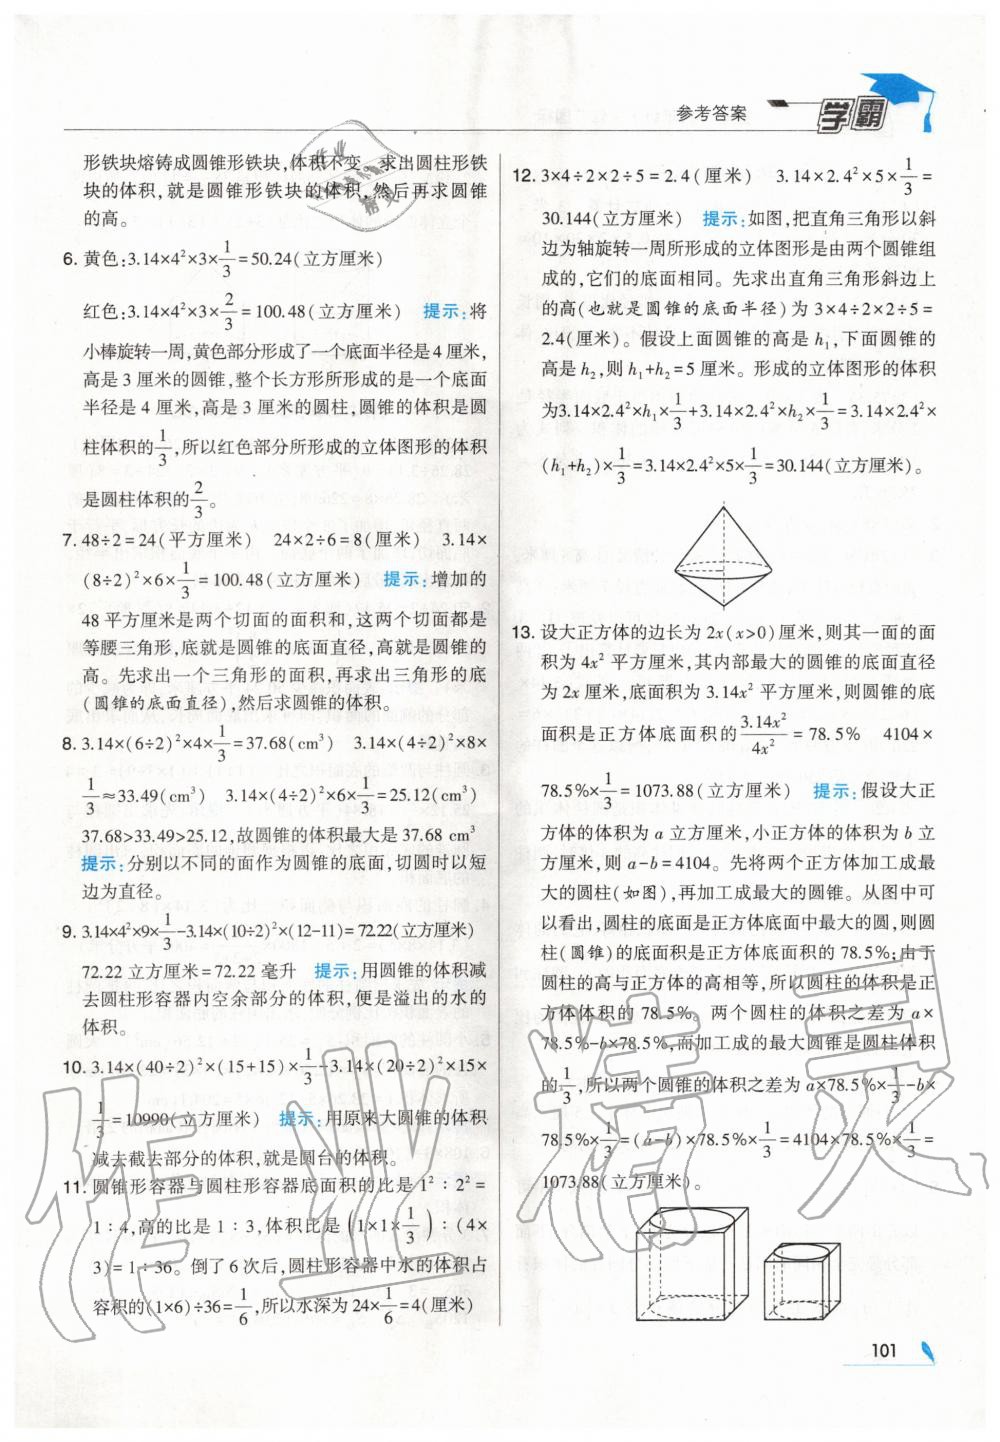 参考答案
学霸
形铁块熔铸成圆锥形铁块,体积不变。求出圆柱形铁
块的体积,就是圆锥形铁块的体积,然后再求圆锥
的高。
6. 黄色:3.14×4²×3×1/3=50.24(立方厘米)
红色:3.14×4²×3×2/3=100.48(立方厘米) 提示:将
小棒旋转一周,黄色部分形成了一个底面半径是4厘米,
高是3厘米的圆锥,整个长方形所形成的是一个底面
半径是4厘米,高是3厘米的圆柱,圆锥的体积是圆
柱体积的1/3,所以红色部分所形成的立体图形的体积
是圆柱体积的2/3。
7. 48÷2=24(平方厘米) 24×2÷6=8(厘米) 3.14×
(8÷2)²×6×1/3=100.48(立方厘米) 提示:增加的
48平方厘米是两个切面的面积和,这两个切面都是
等腰三角形,底就是圆锥的底面直径,高就是圆锥的
高。先求出一个三角形的面积,再求出三角形的底
(圆锥的底面直径),然后求圆锥的体积。
8. 3.14×(6÷2)²×4×1/3=37.68(cm³) 3.14×(4÷2)²×8×
1/3≈33.49(cm³) 3.14×(4÷2)²×6×1/3=25.12(cm³)
37.68>33.49>25.12,故圆锥的体积最大是37.68 cm³
提示:分别以不同的面作为圆锥的底面,切圆时以短
边为直径。
9. 3.14×4²×9×1/3-3.14×(10÷2)²×(12-11)=72.22(立方厘米)
72.22立方厘米=72.22毫升 提示:用圆锥的体积减
去圆柱形容器内空余部分的体积,便是溢出的水的
体积。
10. 3.14×(40÷2)²×(15+15)×1/3-3.14×(20÷2)²×15×
1/3=10990(立方厘米) 提示:用原来大圆锥的体积
减去截去部分的体积,就是圆台的体积。
11. 圆锥形容器与圆柱形容器底面积的比是1²:2²=
1:4,高的比是1:3,体积比是(1×1×1/3):(4×
3)=1:36。倒了6次后,圆柱形容器中水的体积占
容积的(1×6)÷36=1/6,所以水深为24×1/6=4(厘米)
12. 3×4÷2×2÷5=2.4(厘米) 3.14×2.4²×5×1/3=
30.144(立方厘米) 提示:如图,把直角三角形以斜
边为轴旋转一周所形成的立体图形是由两个圆锥组
成的,它们的底面相同。先求出直角三角形斜边上
的高(也就是圆锥的底面半径)为3×4÷2×2÷5=
2.4(厘米)。假设上面圆锥的高是h₁,下面圆锥的
高是h₂,则h₁+h₂=5厘米。形成的立体图形的体积
为3.14×2.4²×h₁×1/3+3.14×2.4²×h₂×1/3=3.14×2.4²×
(h₁+h₂)×1/3=3.14×2.4²×5×1/3=30.144(立方厘米)。
13. 设大正方体的边长为2x(x>0)厘米,则其一面的面
积为4x²平方厘米,其内部最大的圆锥的底面直径
为2x厘米,底面积为3.14x²平方厘米,则圆锥的底
面积是正方体底面积的3.14x²/4x²=78.5% 4104×
78.5%×1/3=1073.88(立方厘米) 提示:假设大正
方体的体积为a立方厘米,小正方体的体积为b立
方厘米,则a-b=4104。先将两个正方体加工成最
大的圆柱(如图),再加工成最大的圆锥。从图中可
以看出,圆柱的底面是正方体底面中最大的圆,则圆
柱(圆锥)的底面积是正方体底面积的78.5%;由于
圆柱的高与正方体的高相等,所以圆柱的体积是正
方体体积的78.5%。两个圆柱的体积之差为a×
78.5%-b×78.5%,而加工成的最大圆锥是圆柱体积
的1/3,所以两个圆锥的体积之差为a×78.5%×1/3-b×
78.5%×1/3=(a-b)×78.5%×1/3=4104×78.5%×1/3=
1073.88(立方厘米)。
101
作业精灵